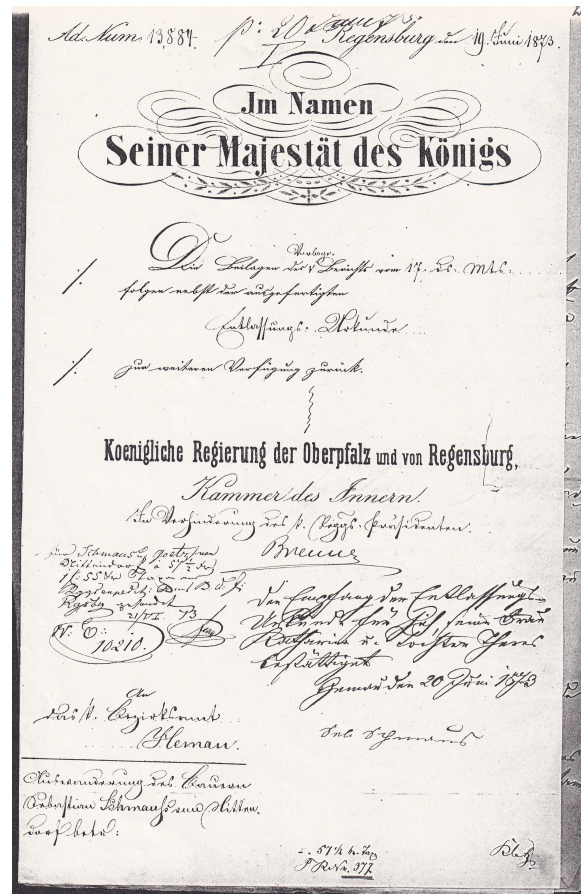 Ad. Num. 13,887.
Regensburg den 19. Juni 1873.
Im Namen
Seiner Majestät des Königs
Vorbegr.
Die Beilagen des Berichts vom 17. ds. Mts.
folgen nebst der ausgefertigten
Entlassungs-Urkunde
zur weiteren Verfügung zurück.
Koenigliche Regierung der Oberpfalz und von Regensburg,
Kammer des Innern.
In Verhinderung des k. Präsidenten.
Schmaus
21/VI. 73
10210.
Den Empfang der Entlassungs-
Urkunde für sich, seine Frau
Katharina u. Tochter Theres
bestättiget
Hemau den 20 Juni 1873
Seb Schmaus
An
das k. Bezirksamt
Hemau.
Auswanderung des Bauern
Sebastian Schmauß von Mitten-
dorf betr:
51½ kr. Tax
P R Nr. 377